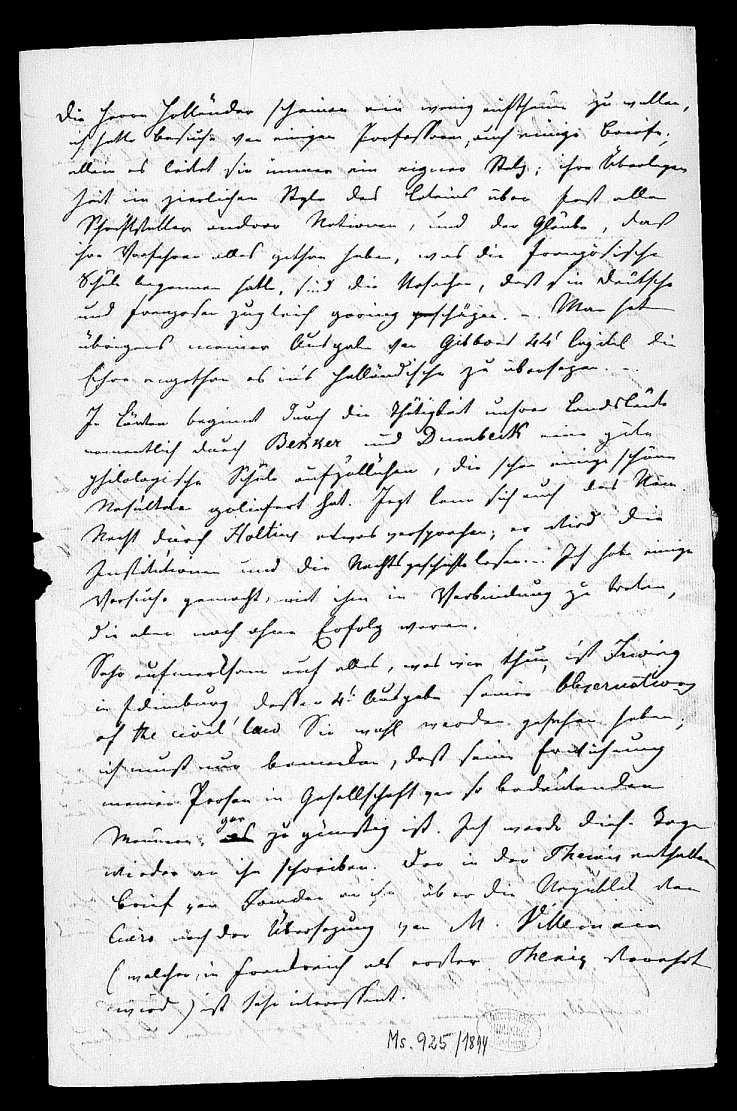 Die Herrn Holländer scheinen ein wenig aufthun zu wollen,
ich hatte Besuche von einigen Professoren, auch einige Briefe,
allein es leitet sie immer ein eigner Stolz; ihre Überlegen
heit im zierlichen Style des Lateins über fast alle
Schriftsteller andrer Nationen, und der Glaube, daß
ihre Vorfahren alles gethan haben, was die französische
Schule begonnen hatte, sind die Ursachen, daß sie Deutsche
und Franzosen zugleich gering schäzen. – Man hat
übrigens meiner Ausgabe von Gibbons 44t Capitel die
Ehre angethan es ins holländische zu übersezen. –
In Löwen beginnt durch die Thätigkeit unsrer Landsleute
namentlich durch Bekker und Dumbeck eine gute
philologische Schule aufzublühen, die schon einige schöne
Resultate geliefert hat. Jezt kann sich auch das Röm.
Recht durch Holtius etwas versprechen; er wird die
Institutionen und die Rechtsgeschichte lesen. Ich habe einige
Versuche gemacht, mit ihm in Verbindung zu treten,
die aber noch ohne Erfolg waren.
Sehr aufmerksam auf alles, was wir thun, ist Irwing
in Edimburg dessen 4t Ausgabe seiner Observations
of the civil law Sie wohl werden gesehen haben;
ich muß nur bemerken, daß seine Erwähnung
meiner Person in Gesellschaft von so bedeutenden
Männern, gar zu günstig ist. Ich werde dieser Tage
wieder an ihn schreiben. Der in der Themis enthaltene
Brief von an ihn über die Republik des
Cicero nach der Übersezung von M. Villemain
(welcher in Frankreich als erster Thema verehrt
wird) ist sehr interessant.
Ms. 925/1894